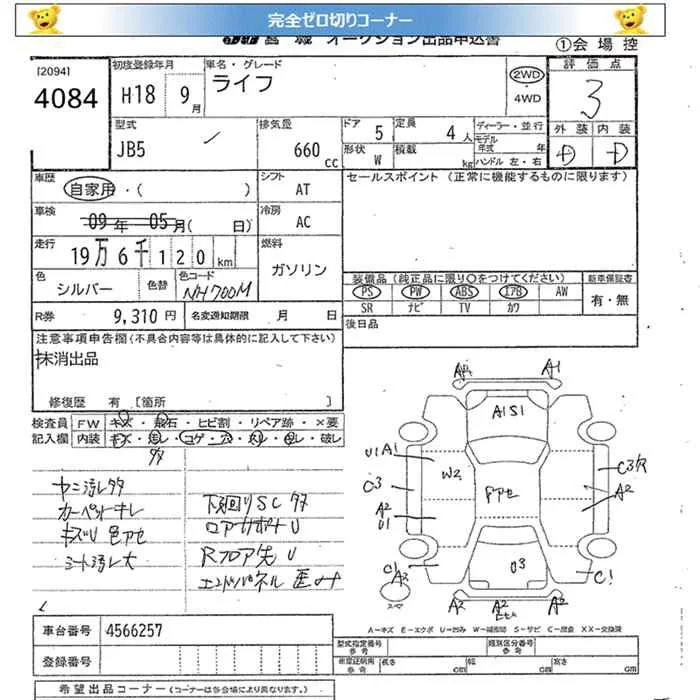 完全ゼロ切りコーナー
宮城 オークション出品申込書
①会場控
[2094]
4084
初度登録年月
H18 9月
車名・グレード
ライフ
2WD
・
4WD
評価点
3
外装 内装
D D
型式
JB5
排気量
660 cc
ドア 5
定員 4人
形状 W
積載 kg
ディーラー・並行
モデル年式 年
ハンドル 左・右
車歴
自家用・( )
シフト
AT
車検
09年 05月( 日)
冷房
AC
走行
19万6千120km
燃料
ガソリン
色
シルバー
色替
色コード
NH700M
R券 9,310円
名変通知期限 月 日
セールスポイント (正常に機能するものに限ります)
装備品 (純正品に限り○をつけてください)
新車保証書
PS PW ABS エアB AW
SR ナビ TV カワ
有・無
後日品
注意事項申告欄(不具合内容等は具体的に記入して下さい)
抹消出品
修復歴 有 [箇所 ]
検査員記入欄
FW キズ・飛石・ヒビ割・リペア跡・×要
内装 キズ・汚レ・コゲ・穴・切レ・破レ
多
ヤニ汚レ多
カーペットキレ
キズU 色アセ
シート汚レ大
下廻りSC多
ロアーサポートU
Rフロア先U
エンドパネル歪み
A1
A1S1
U1A1
W2
C3
A2
U1
PアセC3穴
A2
C1
A2
U3
C1
A2 A2 A2
A−キズ E−エクボ U−凹み W−補修跡 S−サビ C−腐食 XX−交換済
車台番号 4566257
登録番号
型式指定番号 参考
類別区分番号 参考
車庫証明用 参考
長さ cm
幅 cm
高さ cm
希望出品コーナー (コーナーは各会場により異なります。)